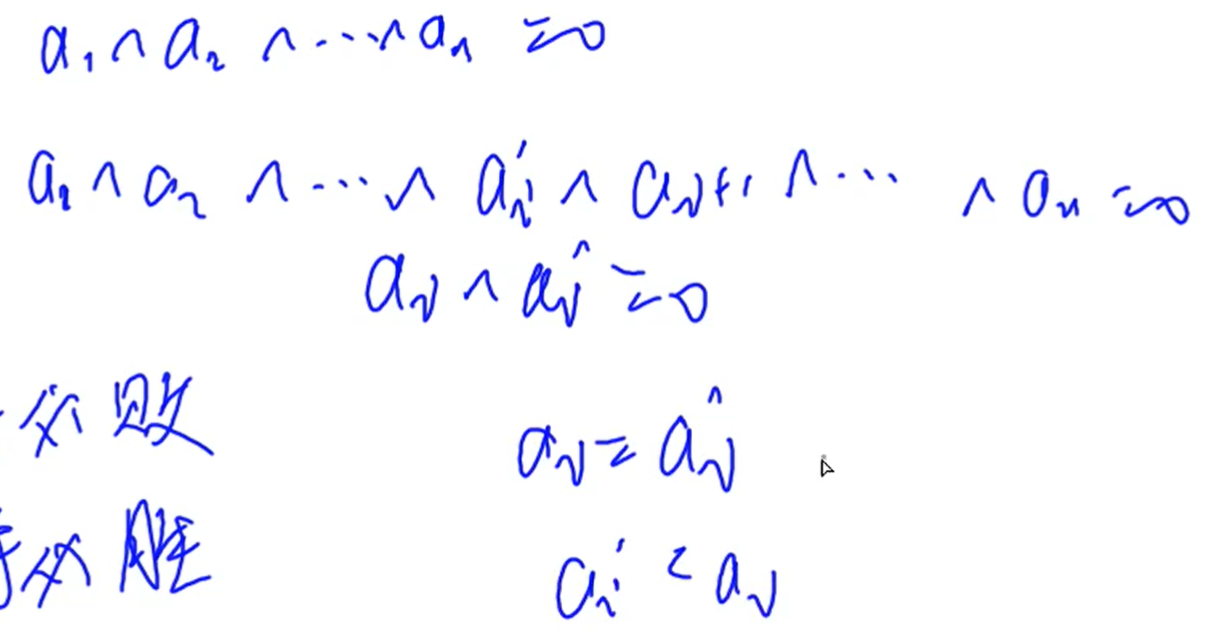 a₁ ∧ a₂ ∧ ... ∧ aₙ = 0
a₁ ∧ a₂ ∧ ... ∧ aᵢ' ∧ aᵢ₊₁ ∧ ... ∧ aₙ = 0
aᵢ ∧ aᵢ' = 0
必败
aᵢ = aᵢ'
必胜
aᵢ' < aᵢ